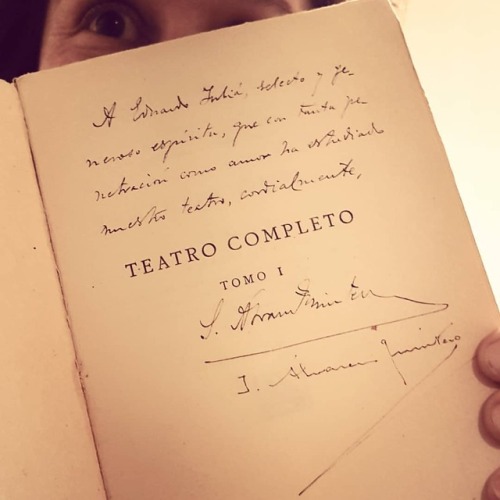 A Eduardo Juliá, selecto y ge-
neroso espíritu, que con tanta pe-
netración como amor ha estudiado
nuestro teatro, cordialmente,
TEATRO COMPLETO
TOMO I
S. Álvarez Quintero
J. Álvarez Quintero